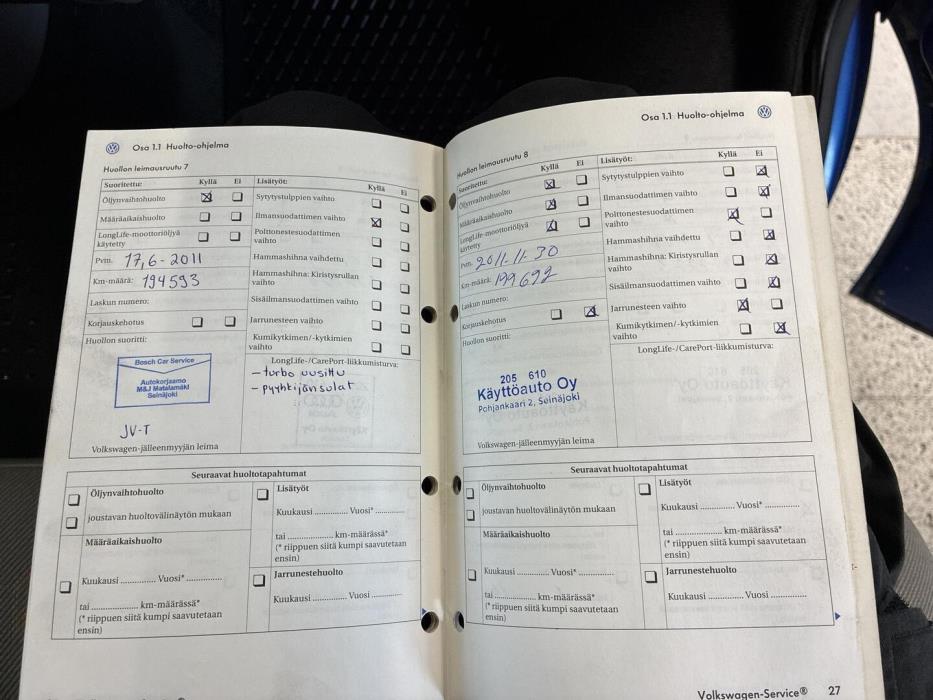 Osa 1.1 Huolto-ohjelma
Huollon leimausruutu 7
Suoritettu: Kyllä Ei
Öljynvaihtohuolto
Määräaikaishuolto
LongLife-moottoriöljyä
käytetty
Pvm. 17,6-2011
Km-määrä: 194593
Laskun numero:
Korjauskehotus
Huollon suoritti:
Bosch Car Service
Autokorjaamo
M&J Matalamäki
Seinäjoki
JV-T
Volkswagen-jälleenmyyjän leima
Lisätyöt: Kyllä Ei
Sytytystulppien vaihto
Ilmansuodattimen vaihto
Polttonestesuodattimen
vaihto
Hammashihna vaihdettu
Hammashihna: Kiristysrullan
vaihto
Sisäilmansuodattimen vaihto
Jarrunesteen vaihto
Kumikytkimen/-kytkimien
vaihto
LongLife-/CarePort-liikkumisturva:
- turbo uusittu
- pyyhkijänsulat
Seuraavat huoltotapahtumat
Öljynvaihtohuolto
joustavan huoltovälinäytön mukaan
Määräaikaishuolto
Kuukausi .............. Vuosi* ..............
tai .............. km-määrässä*
(* riippuen siitä kumpi saavutetaan
ensin)
Lisätyöt
Kuukausi .............. Vuosi* ..............
tai .............. km-määrässä*
(* riippuen siitä kumpi saavutetaan
ensin)
Jarrunestehuolto
Kuukausi .............. Vuosi ..............
Osa 1.1 Huolto-ohjelma
Huollon leimausruutu 8
Suoritettu: Kyllä Ei
Öljynvaihtohuolto
Määräaikaishuolto
LongLife-moottoriöljyä
käytetty
Pvm. 2011-11-30
Km-määrä: 199692
Laskun numero:
Korjauskehotus
Huollon suoritti:
205 610
Käyttöauto Oy
Pohjankaari 2, Seinäjoki
Volkswagen-jälleenmyyjän leima
Lisätyöt: Kyllä Ei
Sytytystulppien vaihto
Ilmansuodattimen vaihto
Polttonestesuodattimen
vaihto
Hammashihna vaihdettu
Hammashihna: Kiristysrullan
vaihto
Sisäilmansuodattimen vaihto
Jarrunesteen vaihto
Kumikytkimen/-kytkimien
vaihto
LongLife-/CarePort-liikkumisturva:
Seuraavat huoltotapahtumat
Öljynvaihtohuolto
joustavan huoltovälinäytön mukaan
Määräaikaishuolto
Kuukausi .............. Vuosi* ..............
tai .............. km-määrässä*
(* riippuen siitä kumpi saavutetaan
ensin)
Lisätyöt
Kuukausi .............. Vuosi* ..............
tai .............. km-määrässä*
(* riippuen siitä kumpi saavutetaan
ensin)
Jarrunestehuolto
Kuukausi .............. Vuosi ..............
Volkswagen-Service® 27